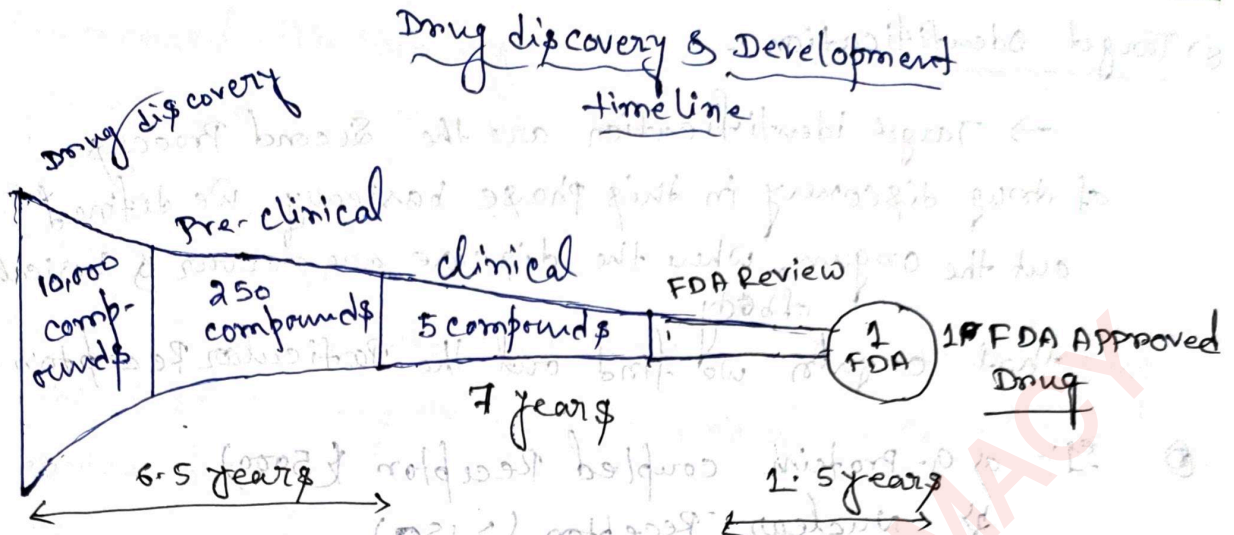 Drug discovery & Development
timeline
Drug discovery
Pre-clinical
clinical
FDA Review
10,000
comp-
ounds
250
compounds
5 compounds
1
FDA
1 FDA Approved
Drug
7 years
6.5 years
1.5 years
MACY